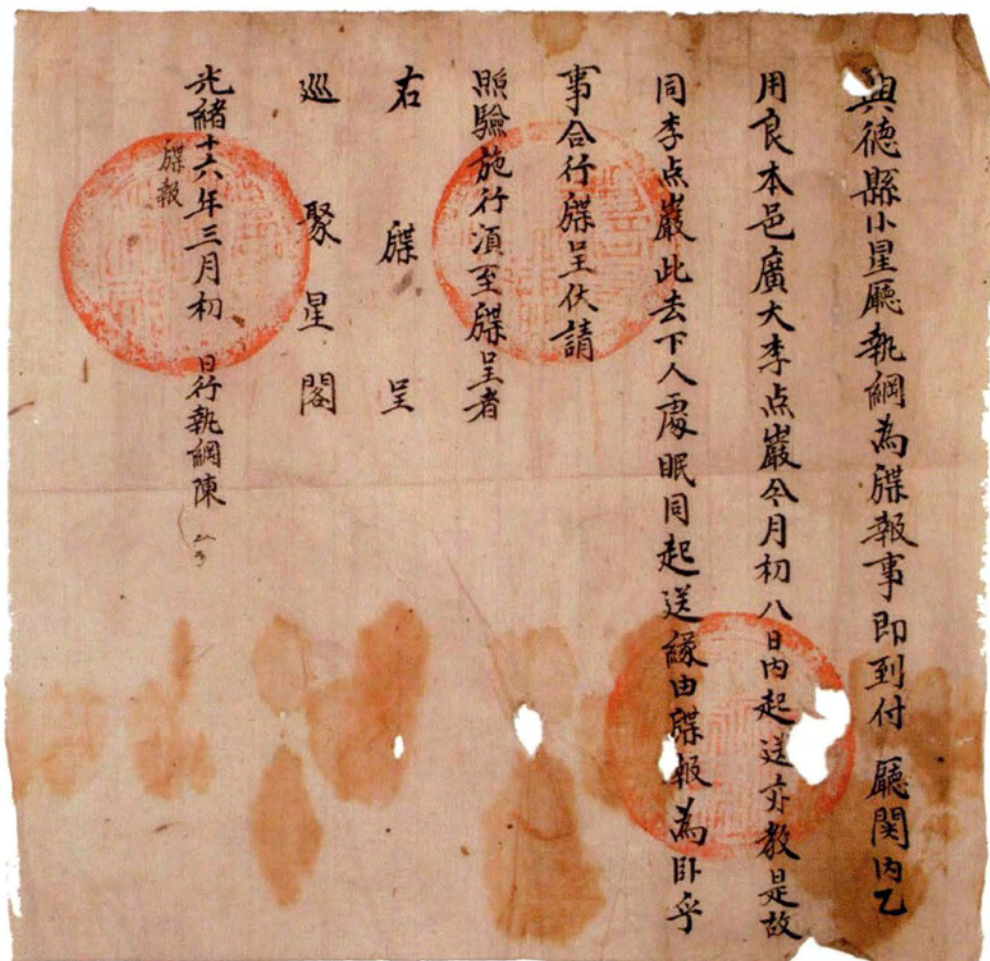 興德縣小星廳執綱為牒報事即到付 廳関內乙
用良本邑廣大李点巖今月初八日內起送亦教是故
同李点巖此去下人處眠同起送緣由牒報為臥乎
事合行牒呈伏請
照驗施行湏至牒呈者
右牒呈
巡聚星閣
光緒十六年三月初 日行執綱陳
牒報